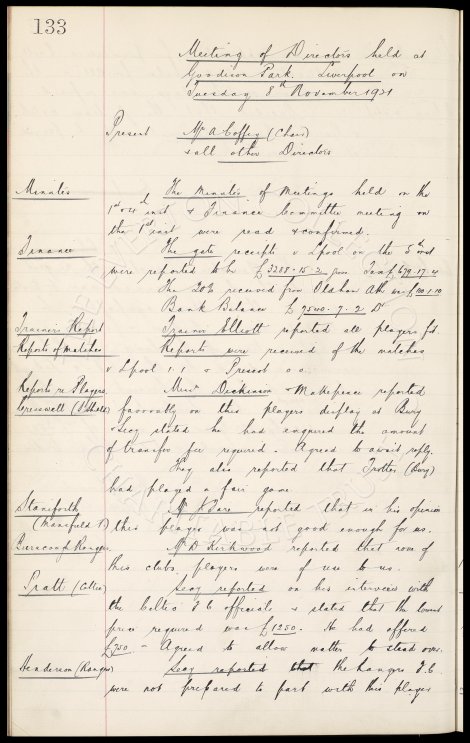 133
Meeting of Directors held at
Goodison Park, Liverpool on
Tuesday 8th November 1921
Present Mr A Coffey (Chair)
& all other Directors
Minutes The Minutes of Meetings held on the
1st & 4th inst & Finance Committee meeting on
the 1st inst were read & confirmed.
Finance The gate receipts v Lpool on the 5th inst
were reported to be £3208-15-2 Tax £679-17-4
The 20% received from Oldham Ath was
Bank Balance £7540-7-2 Dr
Trainer's Report Trainer Elliott reported all players fit.
Reports of matches Reports were received of the matches
v Lpool 1.1 v Prescot
Reports re Players Messrs Dickinson & Makepeace reported
Cresswell (S Shields) favourably on this players display at Bury
& Secy stated he had enquired the amount
of transfer fee required. Agreed to await reply.
They also reported that Trotter (Bury)
had played a fair game.
Staniforth Mr H Dare reported that in his opinion
(Mansfield T) this player was not good enough for us.
Mr D Kirkwood reported that none of
this clubs players were of use to us.
Pratt (Celtic) Secy reported on his interview with
the Celtic F.C officials & stated that the lowest
price required was £1250. He had offered
£750 - Agreed to allow matter to stand over.
Henderson (Rangers) Secy reported that the Rangers F.C.
were not prepared to part with this player